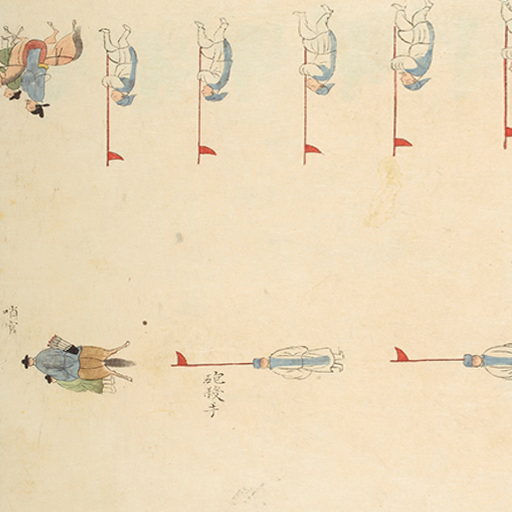 哨官
砲殺手